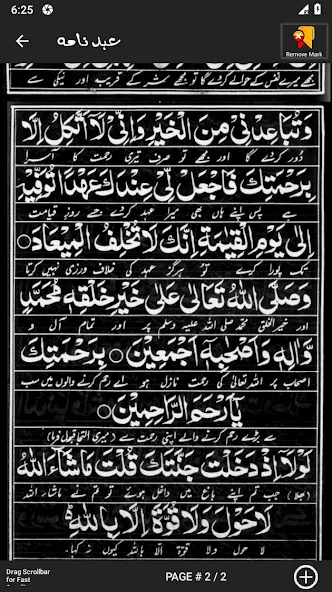 6:25
عہد نامہ
Remove Mark
مجھے میرے نفس کے حوالے کرے گا تو مجھے شر کے قریب اور نیکی سے
وَتُبَاعِدْنِيْ مِنَ الْخَيْرِ وَاِنِّيْ لَآ اَتَّكِلُ اِلَّا
دُور کرنے گا اور مجھے تو صرف تیری رحمت کا آسرا
بِرَحْمَتِكَ فَاجْعَلْ لِّيْ عِنْدَكَ عَهْدًا تُوَفِّيْهِ
ہے پس اپنے ہاں بھی میرا عہد کرنے جسے روزِ قیامت
اِلٰى يَوْمِ الْقِيٰمَةِ اِنَّكَ لَا تُخْلِفُ الْمِيْعَادَ ○
تک پورا کرے تُو ہرگز عہد کی خلاف ورزی نہیں کرتا
وَصَلَّى اللهُ تَعَالٰى عَلٰى خَيْرِ خَلْقِهٖ مُحَمَّدٍ
اور خیر الخلق محمد صلی اللہ علیہ وسلم پر اور تمام آل و
وَّاٰلِهٖ وَاَصْحٰبِهٖٓ اَجْمَعِيْنَ ○ بِرَحْمَتِكَ
اصحاب پر اللہ تعالیٰ کی رحمت نازل ہو اے رحم کرنے والوں میں سب
يَآ اَرْحَمَ الرَّاحِمِيْنَ ○
سے بڑے رحم کرنے والے اپنی رحمت سے (میری التجا قبول فرما)
لَوْلَآ اِذْ دَخَلْتَ جَنَّتَكَ قُلْتَ مَا شَآءَ اللهُ
(بھلا) جب تم اپنے باغ میں داخل ہوئے تو تم نے ماشاء اللہ
لَا حَوْلَ وَلَا قُوَّةَ اِلَّا بِاللهِ
لا حول ولا قوّۃ الّا باللہ کیوں نہ کہا۔
Drag Scrollbar
for Fast
PAGE # 2 / 2